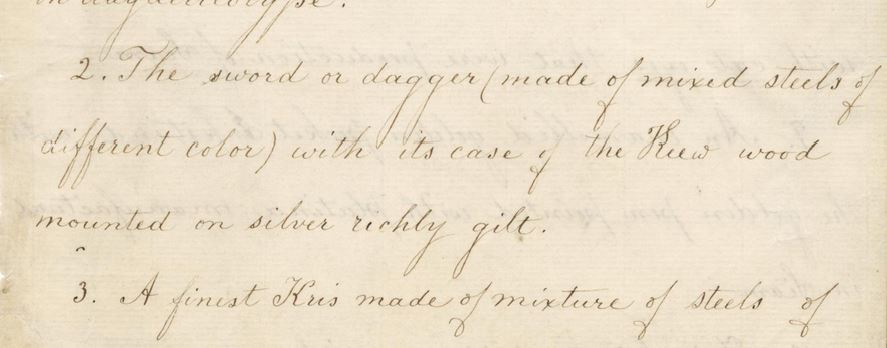 in daguerreotype.
2. The sword or dagger (made of mixed steels of
different color) with its case of the Keew wood
mounted on silver richly gilt.
3. A finest Kris made of mixture of steels of